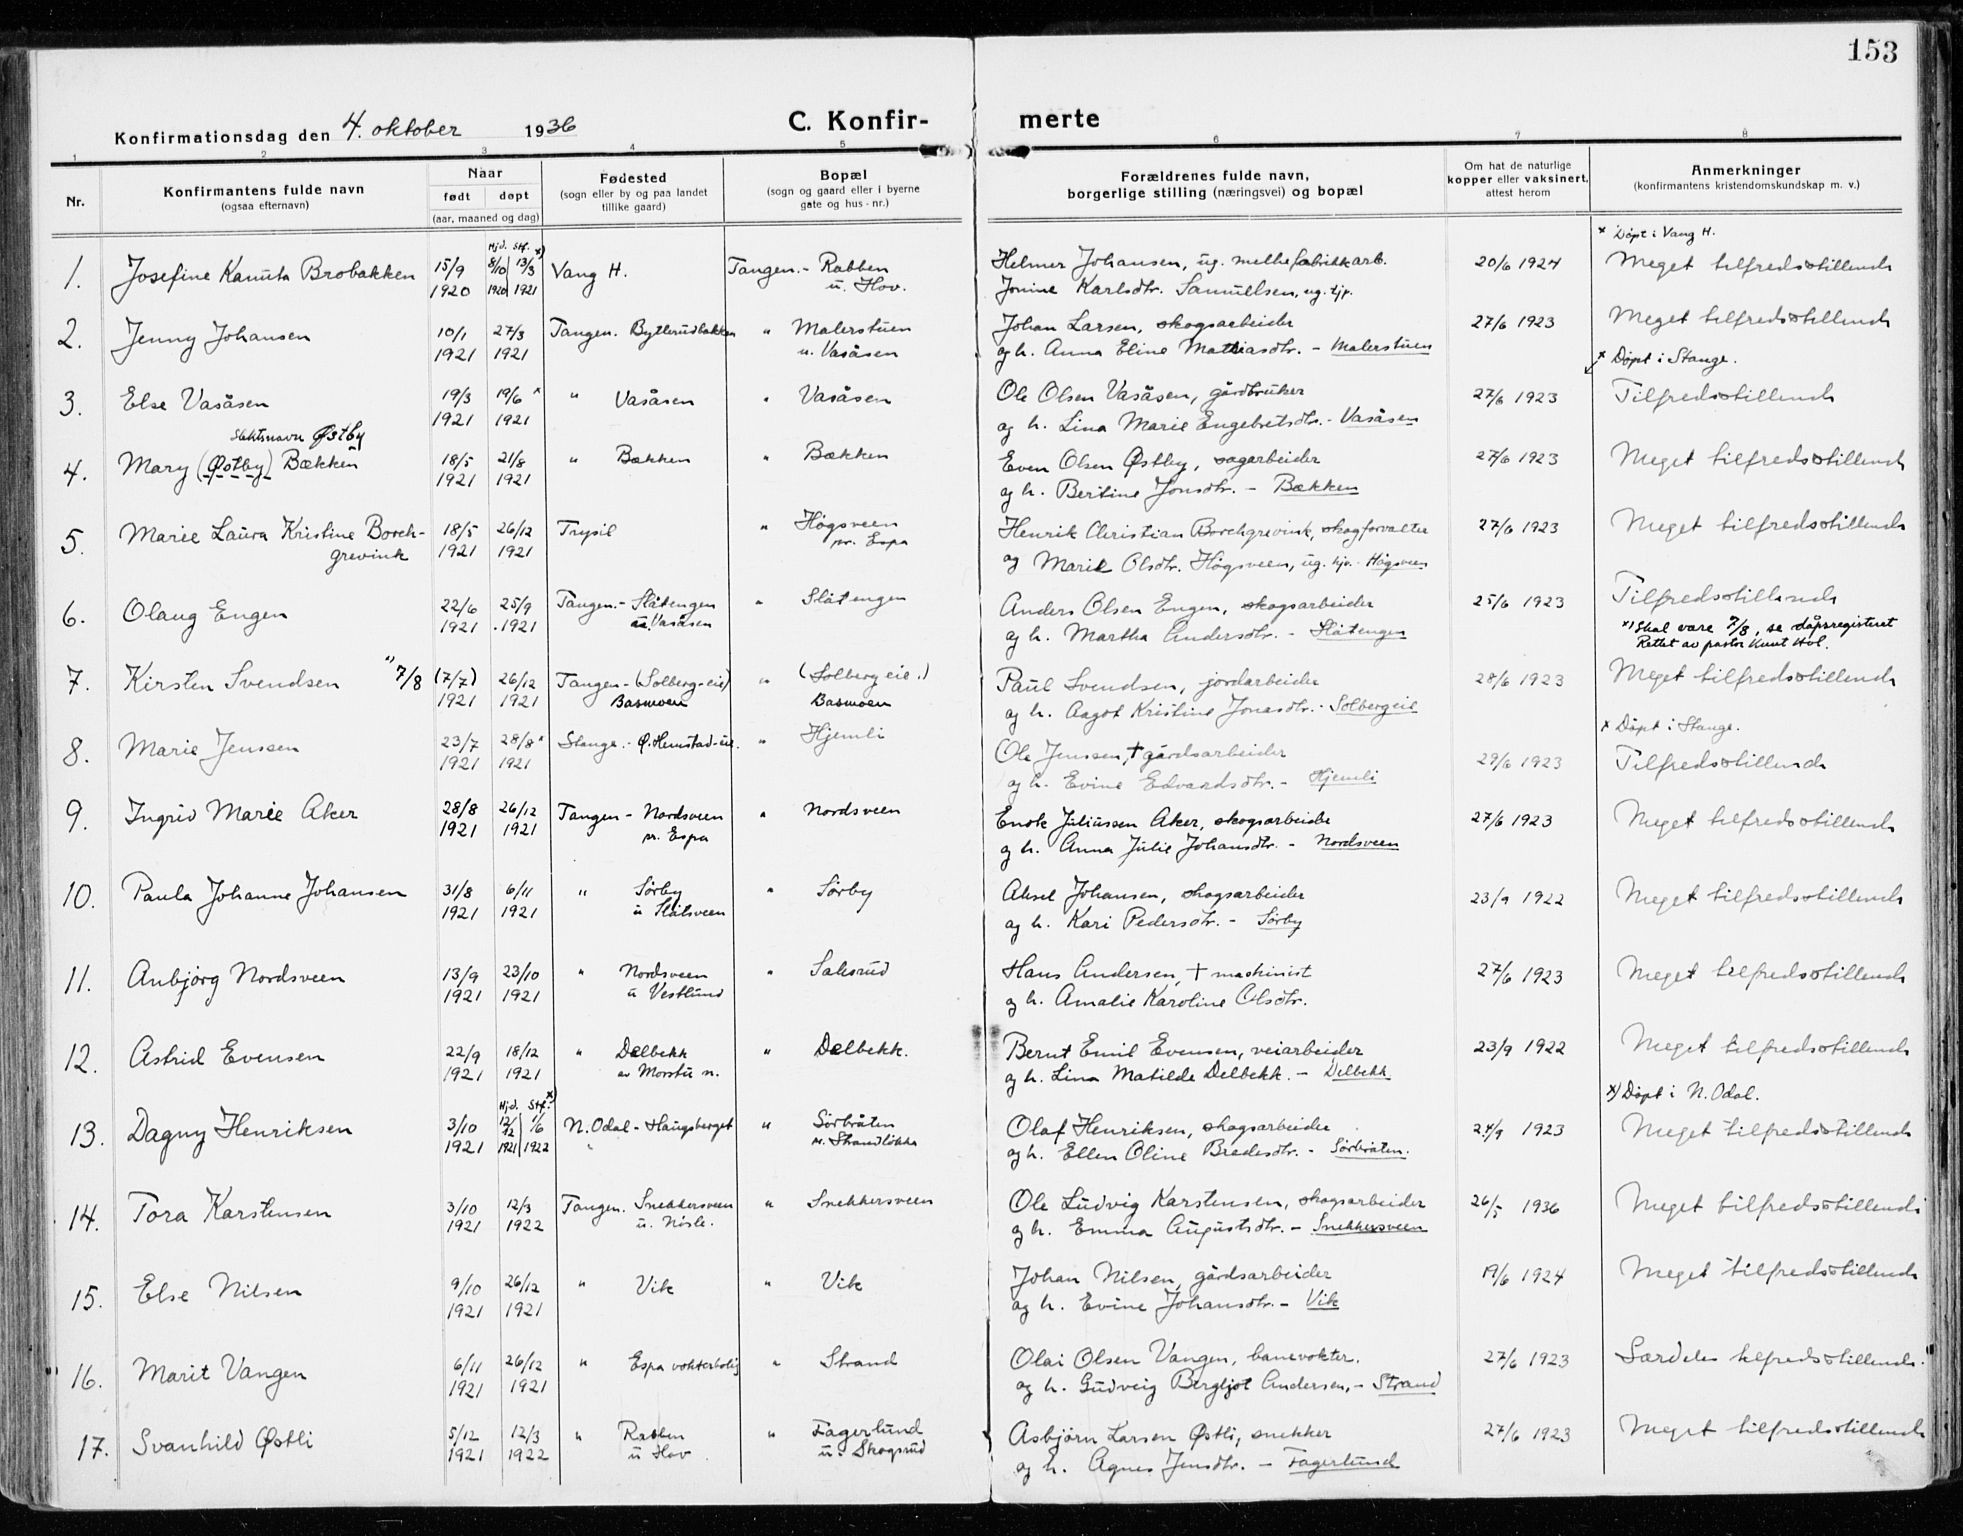 153
Konfirmationsdag den 4. oktober 1936 C. Konfir- merte
1 2 3 4 5 6 7 8
Nr. Konfirmantens fulde navn (ogsaa efternavn) Naar født døpt (aar, maaned og dag) Fødested (sogn eller by og paa landet tillike gaard) Bopæl (sogn og gaard eller i byerne gate og hus-nr.) Forældrenes fulde navn, borgerlige stilling (næringsvei) og bopæl Om hat de naturlige kopper eller vaksinert, attest herom Anmerkninger (konfirmantens kristendomskundskap m. v.)
Hjd. Stf. x) x Døpt i Vang H.
1. Josefine Kanuta Brobakken 15/9 8/10 13/3 Vang H. Tangen.- Rabben Helmer Johansen, ug. mellefabrikkarb. 20/6 1924 Meget tilfredsstillende
1920 1920 1921 u. Hov. Jonine Karlsdtr. Samuelsen, ug. tjp.
2. Jenny Johansen 10/1 27/3 Tangen. Bytlerudbakken " Malerstuen Johan Larsen, skogsarbeider 27/6 1923 Meget tilfredsstillende
1921 1921 u. Vasåsen og h. Anna Eline Mathiasdtr. - Malerstuen
x Døpt i Stange.
3. Else Vasåsen 19/3 19/6 x " Vasåsen " Vasåsen Ole Olsen Vasåsen, gårdbruker 27/6 1923 Tilfredsstillende
1921 1921 og h. Lina Marie Engebretsdtr. - Vasåsen
slektsnavn Østby
4. Mary (Østby) Bækken 18/5 21/8 " Bækken " Bækken Even Olsen Østby, sagarbeider 27/6 1923 Meget tilfredsstillende
1921 1921 og h. Bertine Jonsdtr. - Bækken
5. Marie Laura Kristine Borch- 18/5 26/12 Trysil " Høgsveen Henrik Christian Borchgrevink, skogforvalter 27/6 1923 Meget tilfredsstillende
grevink 1921 1921 pr. Espa og Marie Olsdtr. Høgsveen, ug. tjp. Høgsveen
6. Olaug Engen 22/6 25/9 Tangen.- Slåtengen " Slåtengen Anders Olsen Engen, skogsarbeider 25/6 1923 Tilfredsstillende
1921 1921 u. Vasåsen og h. Martha Andersdtr. - Slåtengen
x) Skal være 7/8, se dåpsregisteret
Rettet av pastor Knut Hol.
7. Kirsten Svendsen x) 7/8 (7/7) 26/12 Tangen - (Solberg-eie) " (Solberg eie.) Paul Svendsen, jordarbeider 28/6 1923 Meget tilfredsstillende
1921 1921 Basmoen Basmoen og h. Aagot Kristine Jonasdtr. - Solbergeie
x Døpt i Stange.
8. Marie Jenssen 23/7 28/8 x Stange.- Ø. Hemstad-eie. " Hjemli Ole Jenssen, † gårdsarbeider 29/6 1923 Tilfredsstillende
1921 1921 og h. Evine Edvardsdtr. - Hjemli
9. Ingrid Marie Aker 28/8 26/12 Tangen - Nordsveen " Nordsveen Enok Juliussen Aker, skogsarbeider 27/6 1923 Meget tilfredsstillende
1921 1921 pr. Espa og h. Anna Julie Johansdtr. - Nordsveen
10. Paula Johanne Johansen 31/8 6/11 " Sørby " Sørby Aksel Johansen, skogsarbeider 23/9 1922 Meget tilfredsstillende
1921 1921 u Slåtsveen og h. Kari Pedersdtr. - Sørby
11. Anbjørg Nordsveen 13/9 23/10 " Nordsveen " Saksrud Hans Andersen, † maskinist 27/6 1923 Meget tilfredsstillende
1921 1921 u Vestlund og h. Amalie Karoline Olsdtr.
12. Astrid Evensen 22/9 18/12 " Delbekk " Delbekk. Bernt Emil Evensen, veiarbeider 23/9 1922 Meget tilfredsstillende
1921 1921 av Morstu n. og h. Lina Matilde Delbekk. - Delbekk
Hjd. Stf. x) x) Døpt i N. Odal.
13. Dagny Henriksen 3/10 12/12 1/6 N. Odal - Haugsberget " Sørbråten Olaf Henriksen, skogsarbeider 24/9 1923 Meget tilfredsstillende
1921 1921 1922 " pr. Strandløkka og h. Ellen Oline Bredesdtr. - Sørbråten.
14. Tora Karstensen 3/10 12/3 Tangen. Snekkersveen " Snekkersveen Ole Ludvig Karstensen, skogsarbeider 26/5 1936 Meget tilfredsstillende
1921 1922 u. Nøsle. og h. Emma Augustsdtr. - Snekkersveen
15. Else Nilsen 9/10 26/12 " Vik " Vik Johan Nilsen, gårdsarbeider 19/6 1924 Meget tilfredsstillende
1921 1921 og h. Evine Johansdtr. - Vik
16. Marit Vangen 6/11 26/12 " Espa vokterbolig " Strand Olai Olsen Vangen, banevokter. 27/6 1923 Særdeles tilfredsstillende.
1921 1921 og h. Gudveig Bergljot Andersen, - Strand
17. Svanhild Østli 5/12 12/3 " Rabben " Fagerlund Asbjørn Larsen Østli, snekker 27/6 1923 Meget tilfredsstillende
1921 1922 u Hov u. Skogsrud og h. Agnes Jensdtr. - Fagerlund